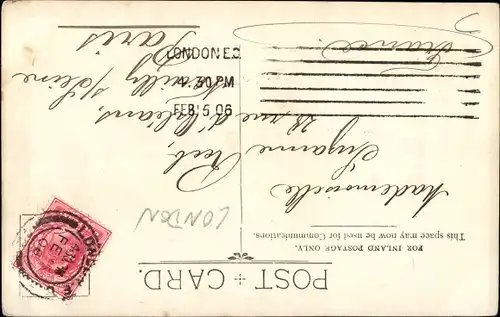 POST CARD.
FOR INLAND POSTAGE ONLY.
This space may now be used for Communications.
LONDON
Mademoiselle
Suzanne
28 rue d'Orléans,
Neuilly s/Seine
Paris
France
LONDON E.C
4.30 PM
FEB 5 06
LONDON